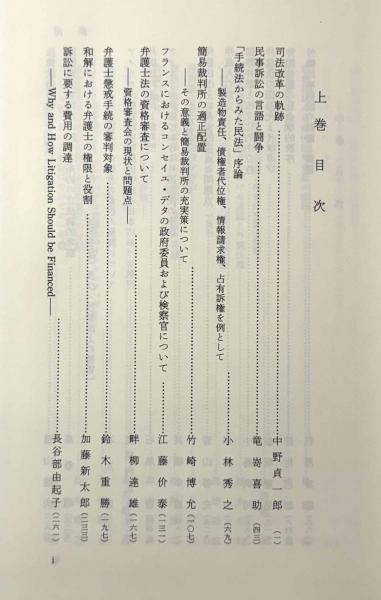 上巻 目次
司法改革の軌跡……中野貞一郎（一）
民事訴訟の言語と闘争……竜嵜喜助（四三）
「手続法からみた民法」序論
――製造物責任、債権者代位権、情報請求権、占有訴権を例として……小林秀之（六九）
簡易裁判所の適正配置
――その意義と簡易裁判所の充実策について……竹﨑博允（一〇七）
フランスにおけるコンセイユ・デタの政府委員および検察官について……江藤价泰（一三一）
弁護士法の資格審査について
――資格審査会の現状と問題点――……畔柳達雄（一六七）
弁護士懲戒手続の審判対象……鈴木重勝（一九七）
和解における弁護士の権限と役割……加藤新太郎（二三三）
訴訟に要する費用の調達
――Why and How Litigation Should be Financed――……長谷部由起子（二六一）
i